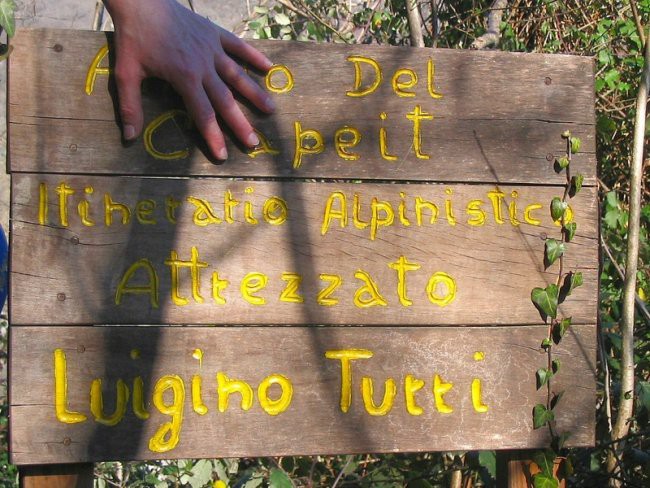 Del
Capeit
Itineratio Alpinistico
Attrezzato
Luigino Turri